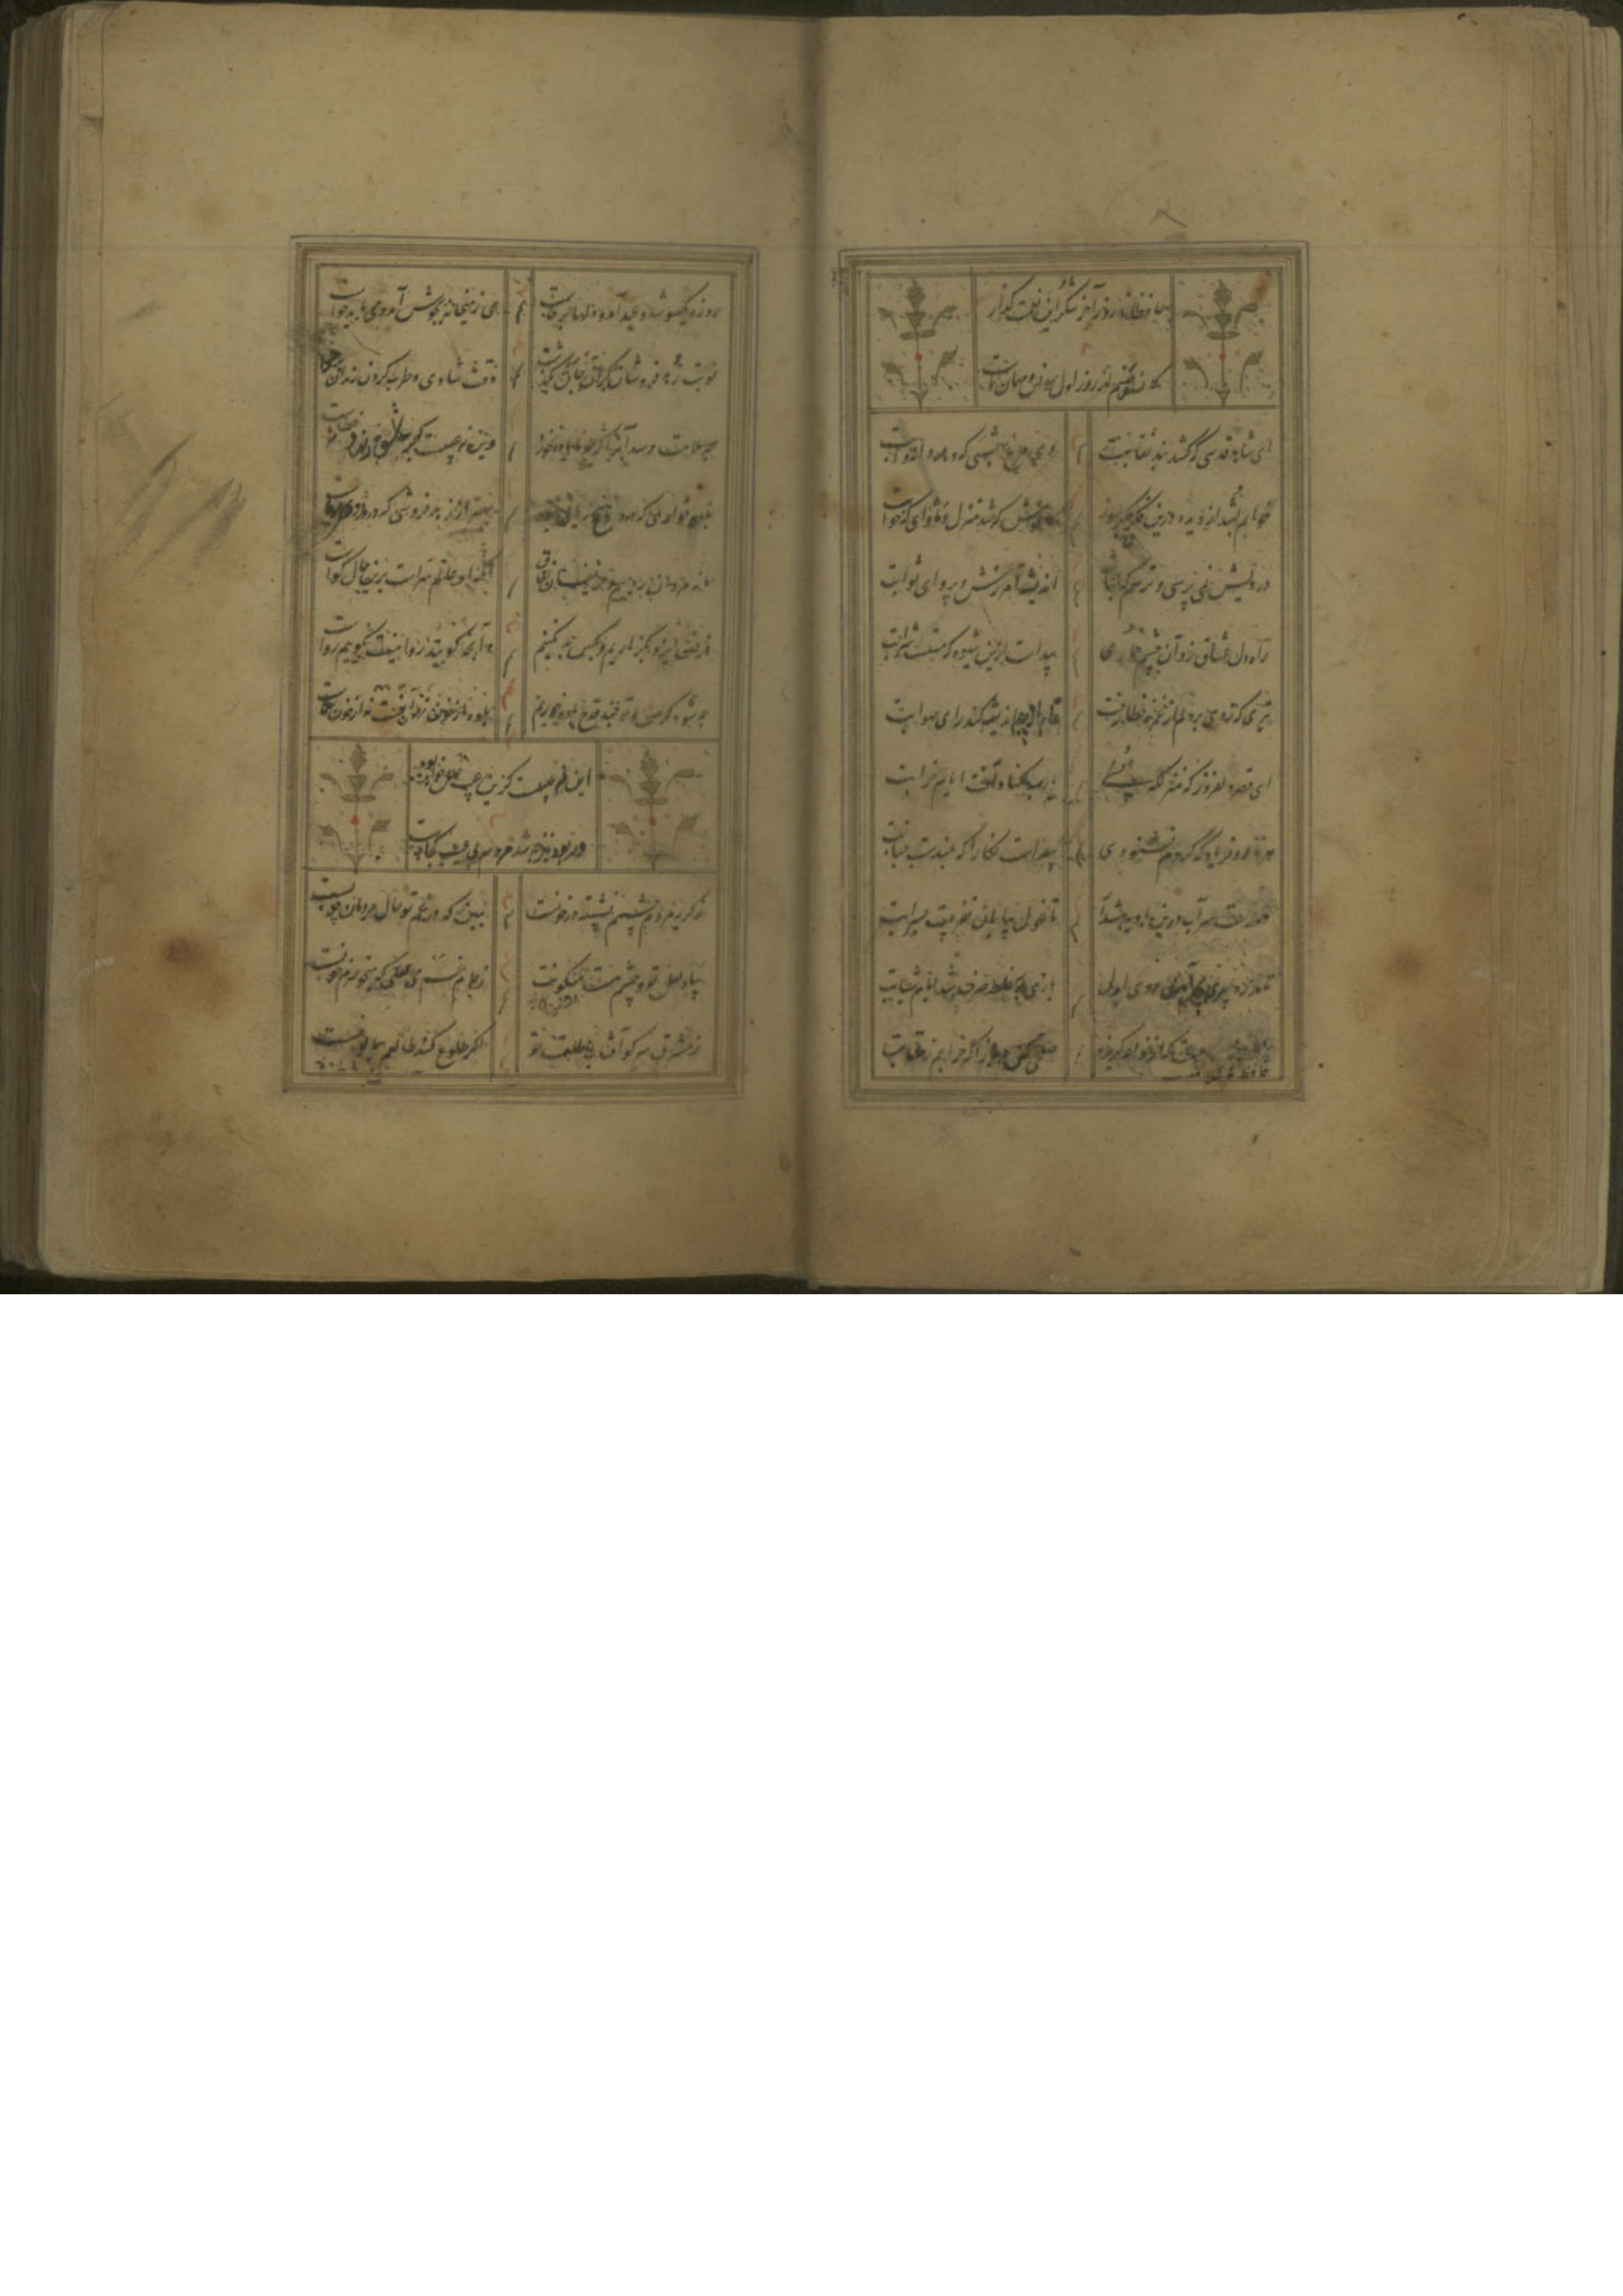 حافظا روز آخر شکر این نعمت گذار
که نشستم از روز اول مونس و مهمان تست
ای شاهد قدسی که کشد بند نقابت
وی مرغ بهشتی که دهد دانه و آبت
خوابم بشد از دیده درین فکر جگرسوز
کاغوش که شد منزل و ماوای که خوابت
درویش نمی پرسی و ترسم که نباشد
اندیشه آمرزش و پروای ثوابت
راه دل عشاق زد آن چشم خماری
پیداست ازین شیوه که مستست شرابت
تیری که زدی بر دلم از غمزه خطا رفت
تا باز چه اندیشه کند رای صوابت
ای قصر دلفروز که منزلگه انسی
یا رب مکناد آفت ایام خرابت
هر ناله و فریاد که کردم نشنودی
پیداست نگارا که بلندست جنابت
دورست سر آب درین بادیه هشدار
تا غول بیابان نفریبد به سرابت
تا در ره پیری به چه آیین روی ای دل
باری به غلط صرف شد ایام شبابت
حافظ نه غلامیست که از خواجه گریزد
صلحی کن و باز آ که خرابم ز عتابت
روزه یکسو شد و عید آمد و دلها برخاست
می ز میخانه بجوش آمد و می باید خواست
نوبت زهد فروشان گران جان بگذشت
وقت شادی و طرب کردن رندان برخاست
چه ملامت رسد آنرا که چو ما باده خورد
وین نه عیبست که بر عاشق رند و خطاست
باده نوشی که درو هیچ ریایی نبود
بهتر از زهد فروشی که درو روی ریاست
ما نه مردان ریاییم و حریفان نفاق
آنکه او عالم سرست برین حال گواست
فرض ایزد بگزاریم و بکس بد نکنیم
وآنچه گویند روا نیست نگوییم رواست
چه شود گر من و تو چند قدح باده خوریم
باده از خون رزانست نه از خون شماست
این چه عیبست کزین عیب خلل خواهد بود
ور بود نیز چه شد مردم بی عیب کجاست
ز گریه مردم چشمم نشسته در خونست
ببین که در غم تو حال مردمان چونست
بیاد لعل تو و چشم مست میگونت
ز جام غم می لعلی که میخورم خونست
ز مشرق سر کو آفتاب طلعت تو
اگر طلوع کند طالعم همایونست